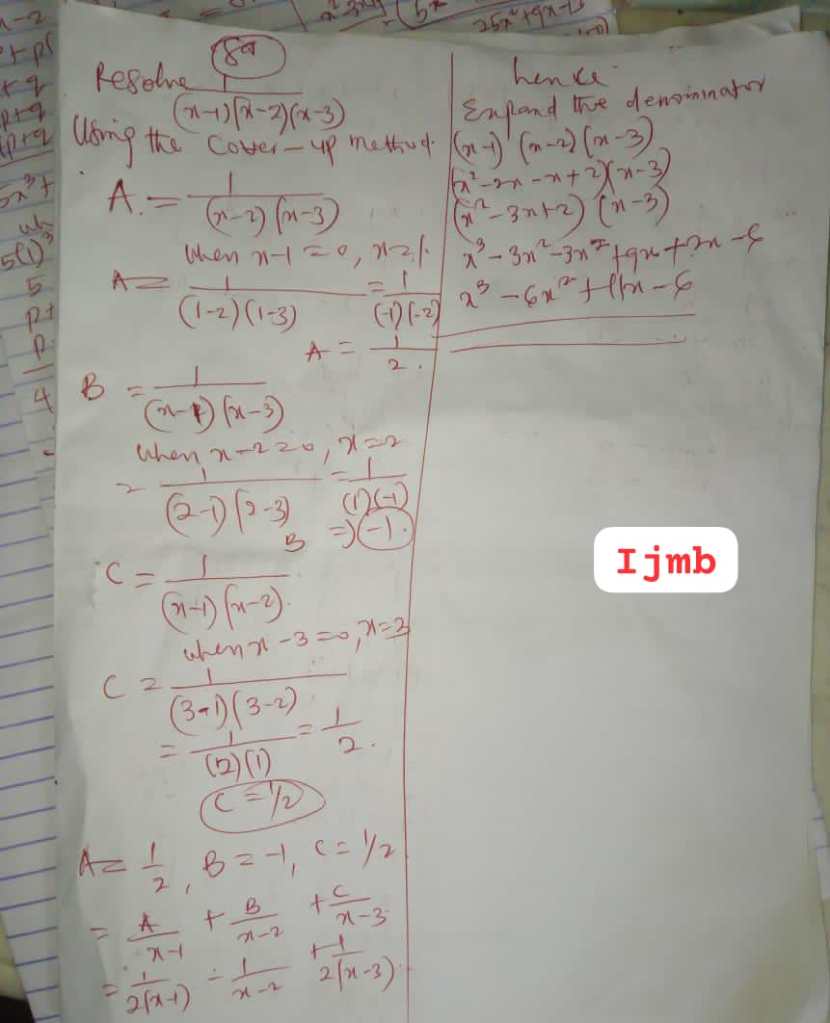 8a
Resolve 1
(x-1)(x-2)(x-3)
Using the Cover-up method
A = 1
(x-2)(x-3)
when x-1=0, x=1.
A = 1 = 1
(1-2)(1-3) (-1)(-2)
A = 1
2.
B = 1
(x-1)(x-3)
when x-2=0, x=2
= 1 = 1
(2-1)(2-3) (1)(-1)
B => -1.
C = 1
(x-1)(x-2).
when x-3=0, x=3
C = 1
(3-1)(3-2)
= 1 = 1
(2)(1) 2.
C = 1/2
A = 1/2, B = -1, C = 1/2
= A + B + C
x-1 x-2 x-3
= 1 - 1 + 1
2(x-1) x-2 2(x-3)
hence
Expand the denominator
(x-1)(x-2)(x-3)
(x²-2x-x+2)(x-3)
(x²-3x+2)(x-3)
x³-3x²-3x²+9x+2x-6
x³-6x²+11x-6
Ijmb